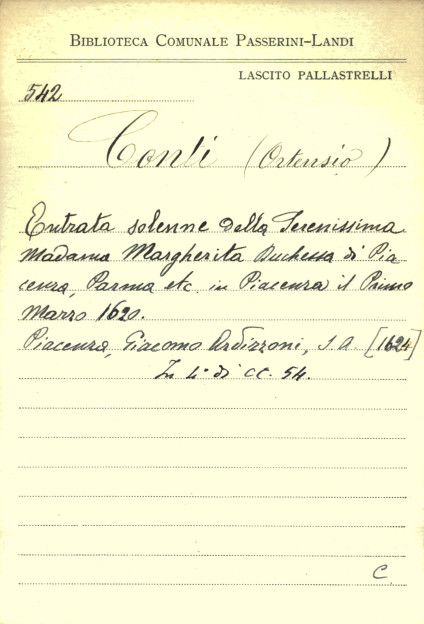 BIBLIOTECA COMUNALE PASSERINI-LANDI
LASCITO PALLASTRELLI
542
Conti (Ortensio)
Entrata solenne della Serenissima
Madama Margherita Duchessa di Pia
cenza, Parma etc. in Piacenza il Primo
Marzo 1620.
Piacenza, Giacomo Ardizzoni, S. A. [1624]
In 4° di CC. 54.
C